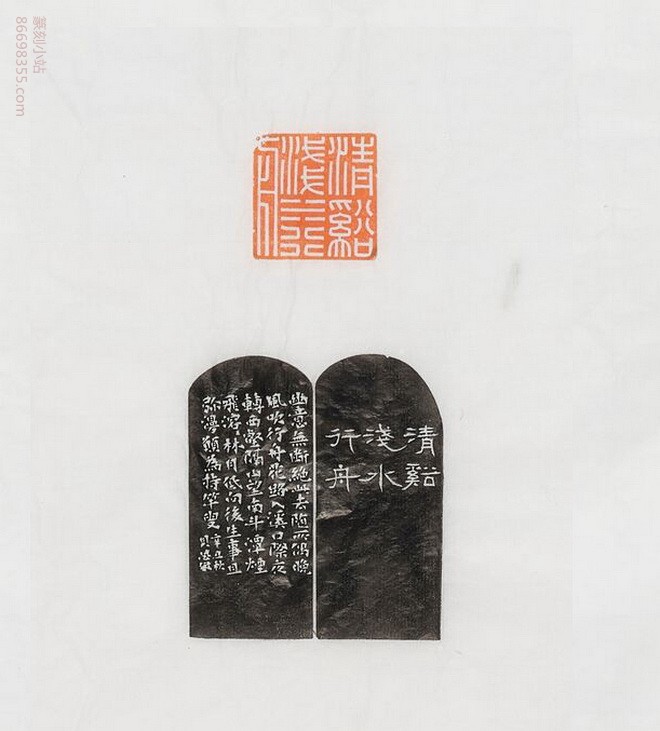 篆刻小站
86698355.com
清谿
淺水
行舟
清谿
淺水
行舟
幽意無斷絕此去隨所偶晚
風吹行舟花路入溪口際夜
轉西壑隔山望南斗潭煙
飛溶〻林月低向後生事且
弥漫願為持竿叟 辛丑秋